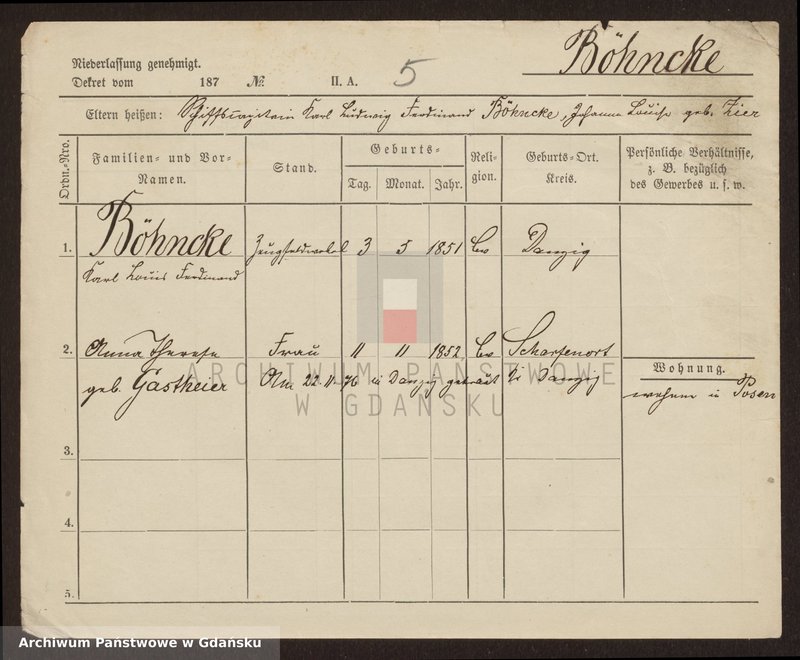 Böhncke
Niederlassung genehmigt.
Dekret vom 187 № II. A. 5
Eltern heißen: Schiffscapitain Karl Ludwig Ferdinand Böhncke, Johanna Louise geb. Zier
Ordn.-Nro.
Familien- und Vor-Namen.
Stand.
Geburts-
Tag. Monat. Jahr.
Reli-gion.
Geburts-Ort.
Kreis.
Persönliche Verhältnisse,
z. B. bezüglich
des Gewerbes u. s. w.
1. Böhncke Zeugfeldwebel 3 5 1851 Ev Danzig
Karl Louis Ferdinand
2. Anna Therese Frau 11 11 1852 Ev Scharfenort
geb. Gastheier Am 22-11-76 in Danzig getraut Kr Danzig
Wohnung.
wohnen in Posen
3.
4.
5.
ARCHIWUM PAŃSTWOWE
W GDAŃSKU
Archiwum Państwowe w Gdańsku